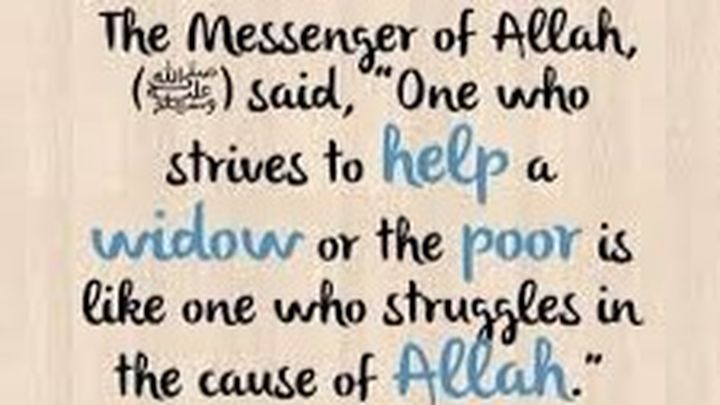 The Messenger of Allah,
(ﷺ) said, "One who
strives to help a
widow or the poor is
like one who struggles in
the cause of Allah."